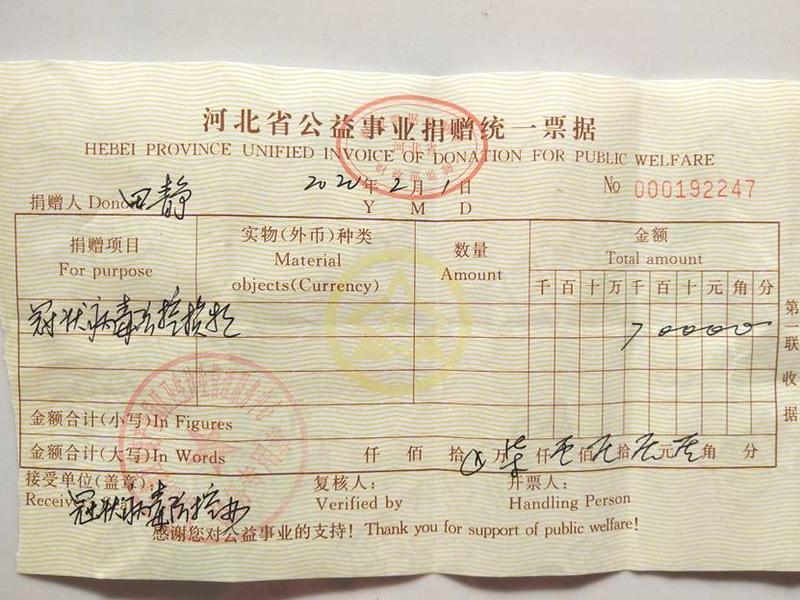 河北省公益事业捐赠统一票据
HEBEI PROVINCE UNIFIED INVOICE OF DONATION FOR PUBLIC WELFARE
捐赠人 Donor 田静 2020年2月1日 No 000192247
Y M D
捐赠项目 实物(外币)种类 数量 金额
For purpose Material objects(Currency) Amount Total amount
千百十万千百十元角分
冠状病毒防控捐款 700000
第一联 收据
金额合计(小写)In Figures
金额合计(大写)In Words 仟 佰 拾 万 柒 仟 佰 拾 元 角 分
接受单位(盖章): 复核人: 开票人:
Receiv 冠状病毒防控办 Verified by Handling Person
感谢您对公益事业的支持! Thank you for support of public welfare!